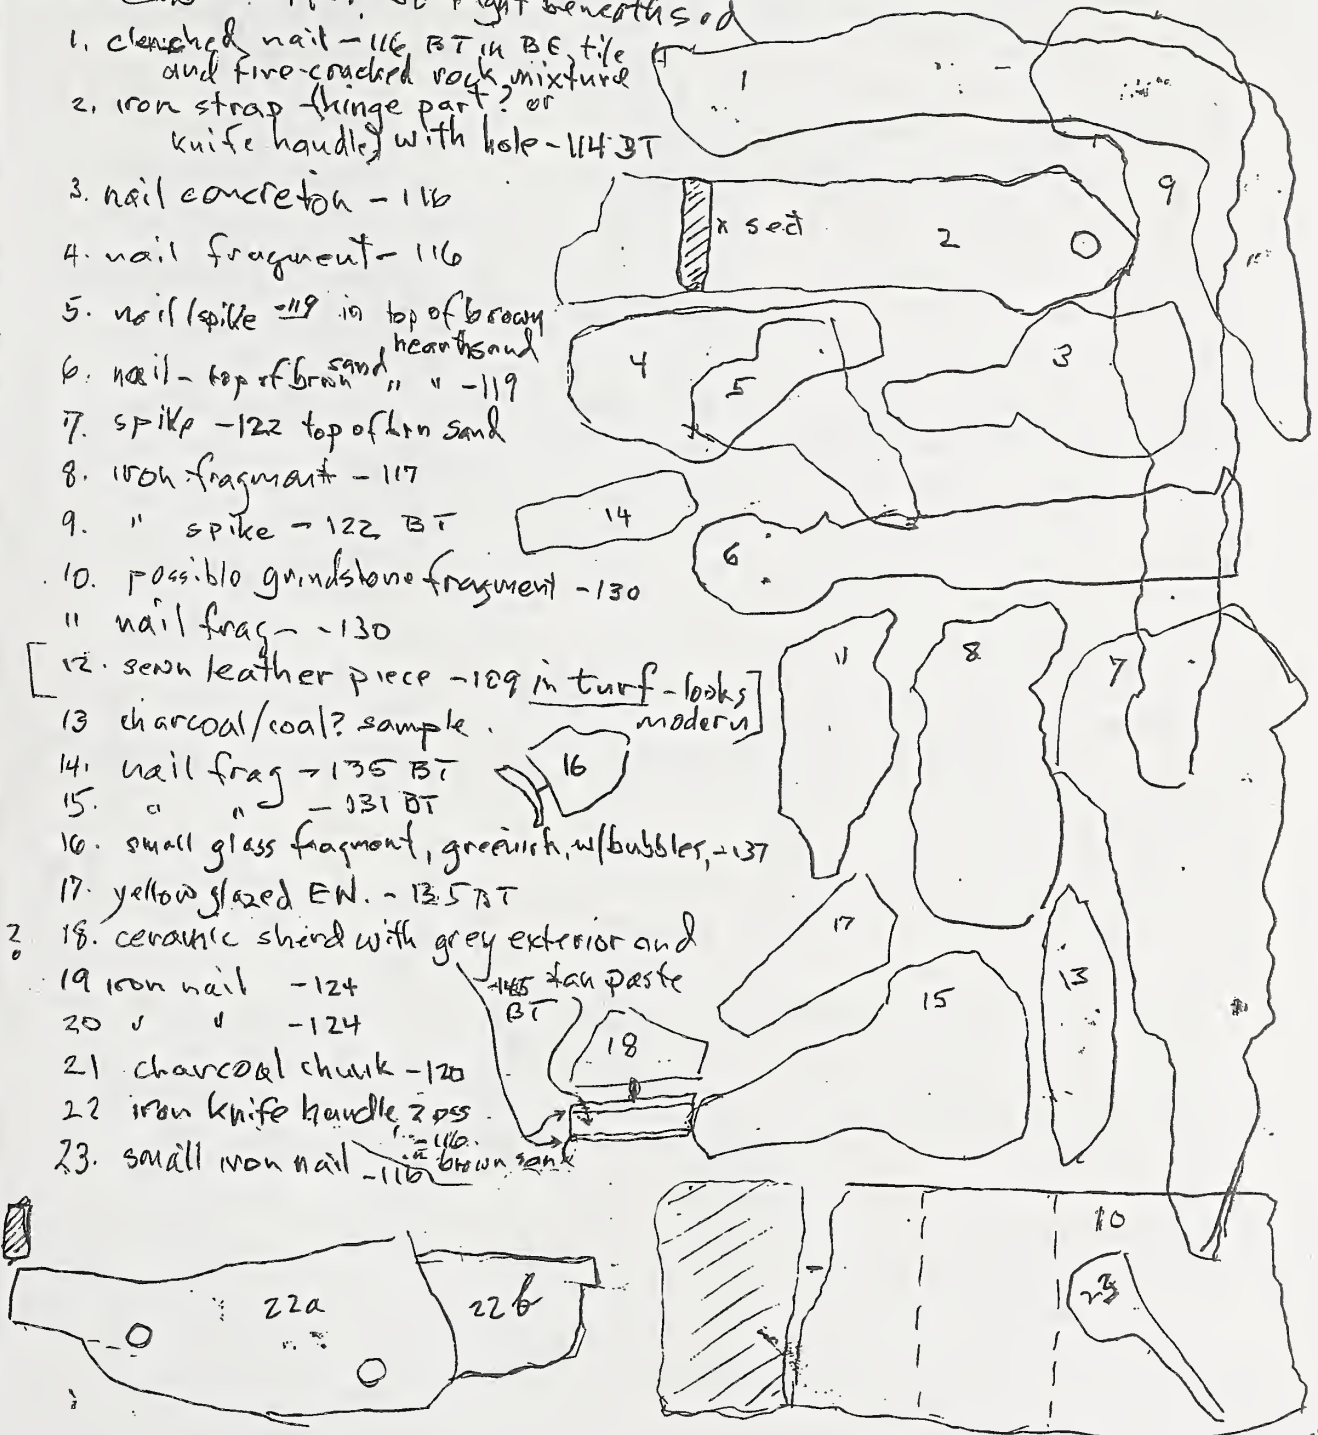 right beneath sod
1. clenched nail - 116 BT in BE, tile
and fire-cracked rock mixture
2. iron strap (hinge part? or
knife handle) with hole - 114 BT
3. nail concretion - 116
4. nail fragment - 116
5. nail/spike - 119 in top of brown
hearth sand
6. nail - top of brown sand " " - 119
7. spike - 122 top of brn sand
8. iron fragment - 117
9. " spike - 122 BT
10. possible grindstone fragment - 130
11 nail frag - - 130
[12. sewn leather piece - 109 in turf - looks
modern]
13 charcoal/coal? sample
14. nail frag - 135 BT
15. " " - 131 BT
16. small glass fragment, greenish, w/bubbles, - 137
17. yellow glazed EW. - 135 BT
? 18. ceramic sherd with grey exterior and
tan paste
BT
19 iron nail - 124
20 " " - 124
21 charcoal chunk - 120
22 iron knife handle 2 pss
- 116
23. small iron nail - 116 brown sand
1
9
x sect
2
4
5
3
14
6
11
8
7
16
17
13
15
18
10
23
22a
22b